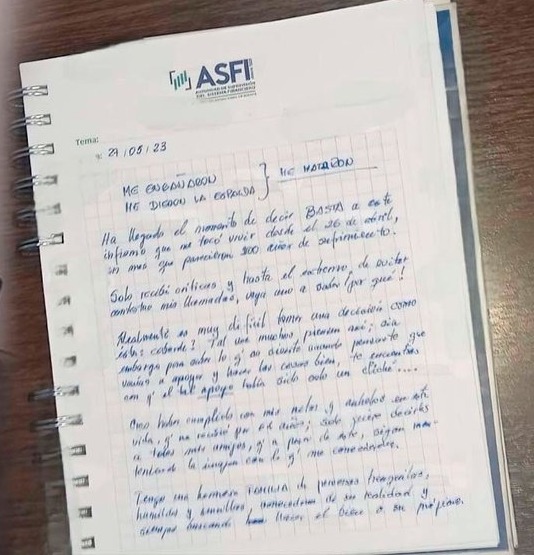 ASFI
AUTORIDAD DE SUPERVISIÓN
DEL SISTEMA FINANCIERO
Tema:
27/05/23
ME ENGAÑARON
ME DIERON LA ESPALDA } ME MATARON
Ha llegado el momento de decir BASTA a este
infierno que me tocó vivir desde el 26 de abril,
un mes que parecieron 200 años de sufrimiento.
Solo recibí críticas y hasta el extremo, de evitar
contestar mis llamadas, vaya uno a saber por qué!
Realmente es muy difícil tomar una decisión como
ésta; cobarde? Tal vez muchos piensen así; sin
embargo para saber lo q' se siente cuando pensaste que
vamos a apoyar y hacer las cosas bien, te encuentras
con q' el tal apoyo había sido solo un cliché...
Creo haber cumplido con mis metas y anhelos en esta
vida, q' me recibió por años; solo quiero decirles
a todos mis amigos, q' a pesar de esto, sigan
la imagen con la q' me conocieron.
Tengo una hermosa FAMILIA de personas tranquilas,
humildes y sencillas, conocedoras de su realidad y
siempre buscando hacer el bien a su prójimo.